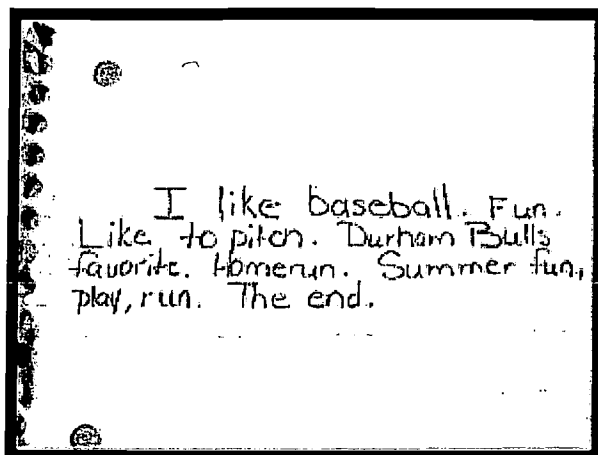 I like baseball. Fun.
Like to pitch. Durham Bulls
favorite. Homerun. Summer fun,
play, run. The end.